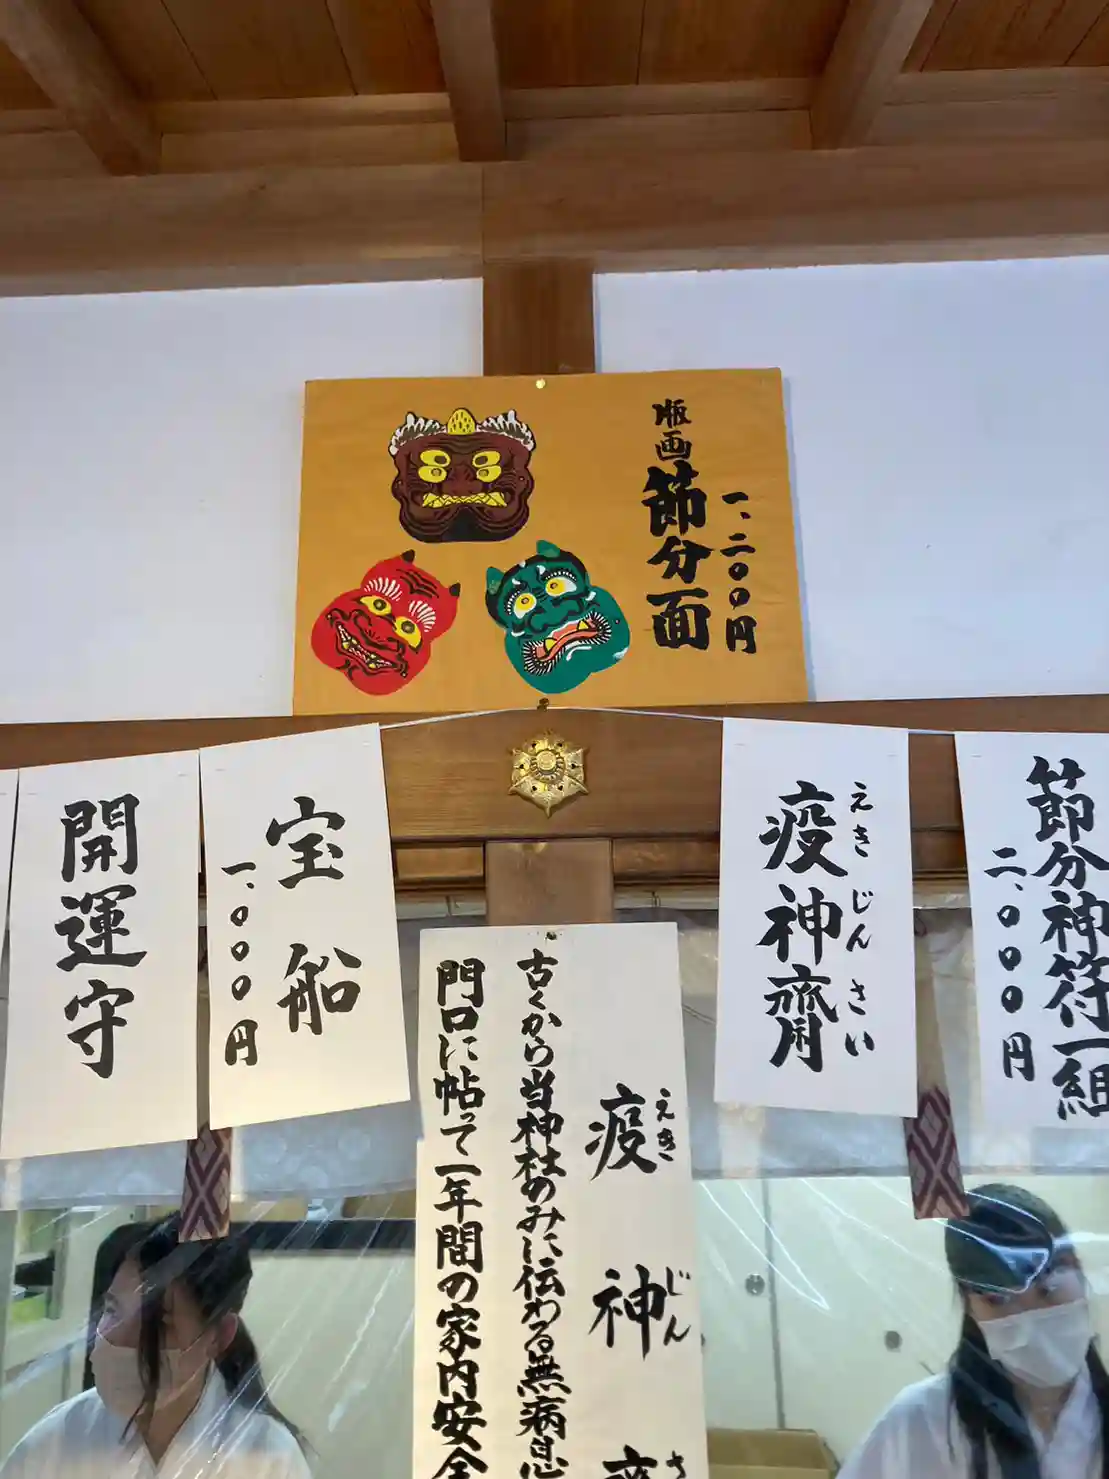 版画
節分面
一、二〇〇円
節分神符一組
二、〇〇〇円
えきじんさい
疫神齋
宝船
一、〇〇〇円
開運守
えき じん さ
疫神齋
古くから当神社のみに伝わる無病息
門口に帖って一年間の家内安全